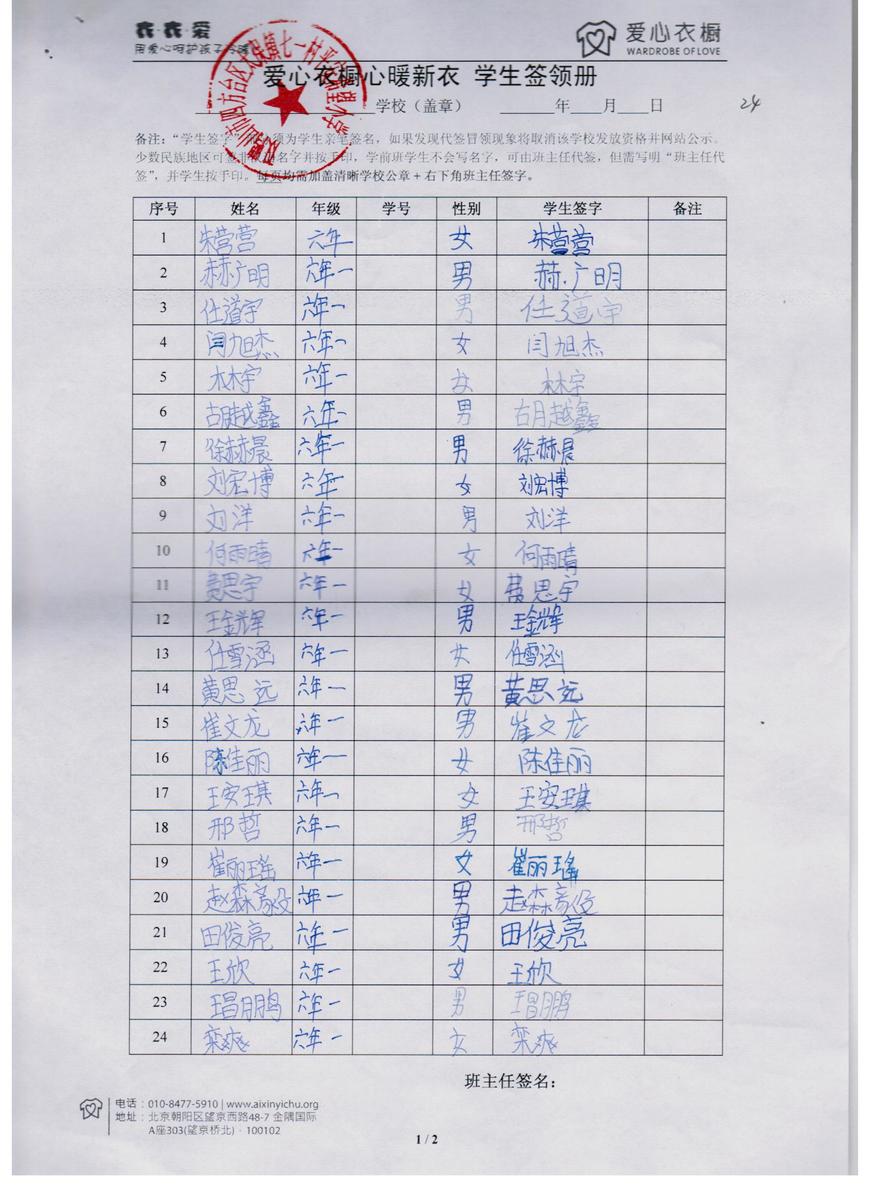 衣·衣·爱
用爱心呵护孩子冷暖
爱心衣橱
WARDROBE OF LOVE
爱心衣橱心暖新衣 学生签领册
学校（盖章） 年 月 日
24
备注：“学生签字”须为学生亲笔签名，如果发现代签冒领现象将取消该学校发放资格并网站公示。
少数民族地区可签非汉语名字并按手印，学前班学生不会写名字，可由班主任代签，但需写明“班主任代
签”，并学生按手印。每页均需加盖清晰学校公章+右下角班主任签字。
序号 姓名 年级 学号 性别 学生签字 备注
1 朱营营 六年 女 朱营营
2 赫广明 六年一 男 赫.广明
3 仕道宇 六年一 男 仕道宇
4 闫旭杰 六年一 女 闫旭杰
5 林宇 六年一 女 林宇
6 胡越鑫 六年一 男 胡越鑫
7 徐赫晨 六年一 男 徐赫晨
8 刘宏博 六年一 女 刘宏博
9 刘洋 六年一 男 刘洋
10 何雨晴 六年一 女 何雨晴
11 思宇 六年一 女 思宇
12 王金辉 六年一 男 王金辉
13 仕雪涵 六年一 女 仕雪涵
14 黄思远 六年一 男 黄思远
15 崔文龙 六年一 男 崔文龙
16 陈佳丽 六年一 女 陈佳丽
17 王安琪 六年一 女 王安琪
18 邢哲 六年一 男 邢哲
19 崔丽瑶 六年一 女 崔丽瑶
20 赵森 六年一 男 赵森
21 田俊亮 六年一 男 田俊亮
22 王欣 六年一 女 王欣
23 鹏 六年一 男 鹏
24 栾爽 六年一 女 栾爽
班主任签名：
电话：010-8477-5910 | www.aixinyichu.org
地址：北京朝阳区望京西路48-7 金隅国际
A座303(望京桥北)·100102
1 / 2